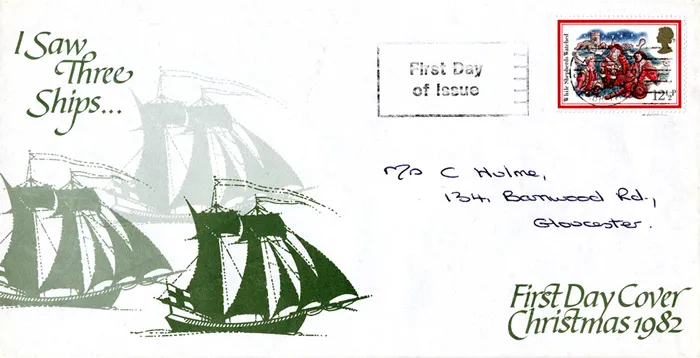 I Saw
Three
Ships...
First Day
of Issue
While Shepherds Watched
12½P
Mrs C Hulme,
134, Barnwood Rd.,
Gloucester.
First Day Cover
Christmas 1982